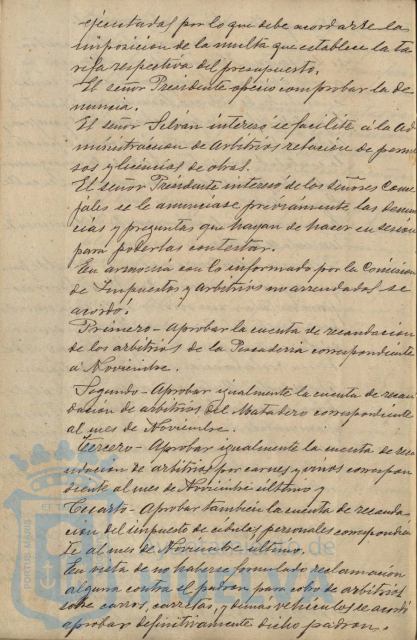 ejecutadas por lo que debe acordarse la
imposicion de la multa que establece la ta-
rifa respectiva del presupuesto.
El señor Presidente ofreció comprobar la de-
nuncia.
El señor Silván interesó se facilite á la Ad-
ministracion de Arbitrios relacion de permi-
sos y licencias de obras.
El señor Presidente interesó de los señores Conce-
jales se le anunciase previamente las denun-
cias y preguntas que hayan de hacer en sesión
para poderlas contestar.
En armonía con lo informado por la Comision
de Impuestos y Arbitrios no arrendados se
acordó:
Primero- Aprobar la cuenta de recaudacion
de los arbitrios de la Pescaderia correspondiente
á Noviembre.
Segundo- Aprobar igualmente la cuenta de recau-
dacion de arbitrios del Matadero correspondiente
al mes de Noviembre.
Tercero- Aprobar igualmente la cuenta de recau-
dacion de arbitrios por carnes y vinos correspon-
diente al mes de Noviembre último y
Cuarto- Aprobar tambien la cuenta de recauda-
cion del impuesto de cédulas personales correspondien-
te al mes de Noviembre último.
En vista de no haberse formulado reclamacion
alguna contra el padron para cobro de arbitrios
sobre carros, carretas, y demas vehiculos se acordó
aprobar definitivamente dicho padron.
PORTUS MARIS ET
HUELVA